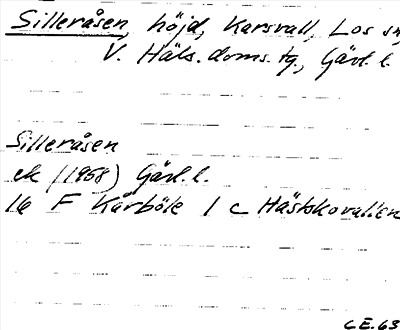 Silleråsen, höjd, Karsvall, Los sn,
V. Häls. doms. tg., Gävl. l.
Silleråsen
ek (1958) Gävl. l.
16 F Kårböle 1 c Hästskovallen
C.E. 63